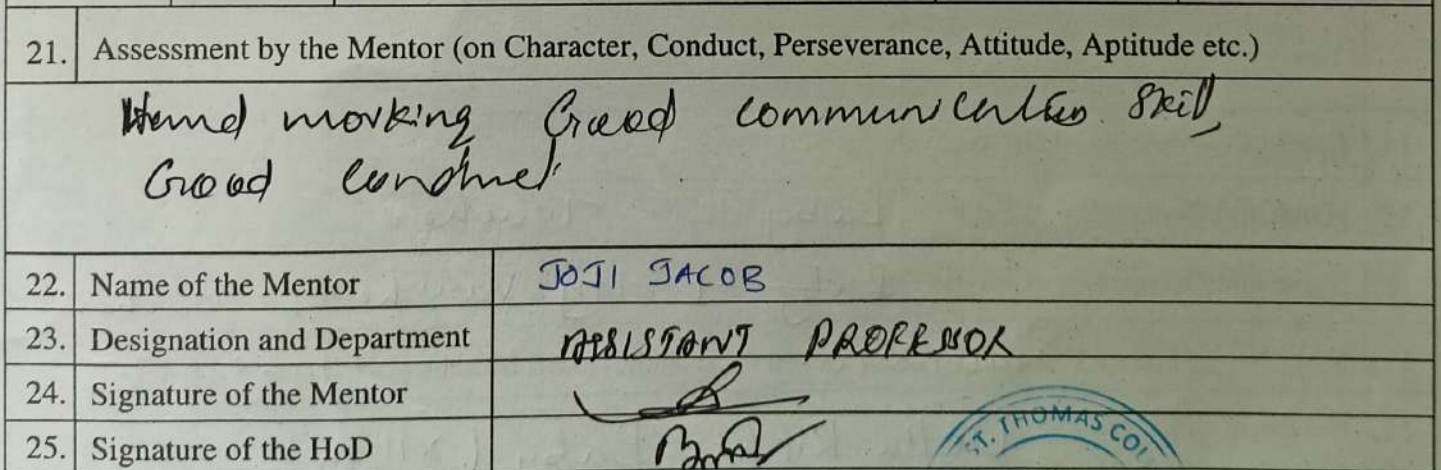 21. Assessment by the Mentor (on Character, Conduct, Perseverance, Attitude, Aptitude etc.)
Hard working Good communication skill,
Good conduct
22. Name of the Mentor JOJI JACOB
23. Designation and Department ASSISTANT PROFESSOR
24. Signature of the Mentor
25. Signature of the HoD
ST. THOMAS COL